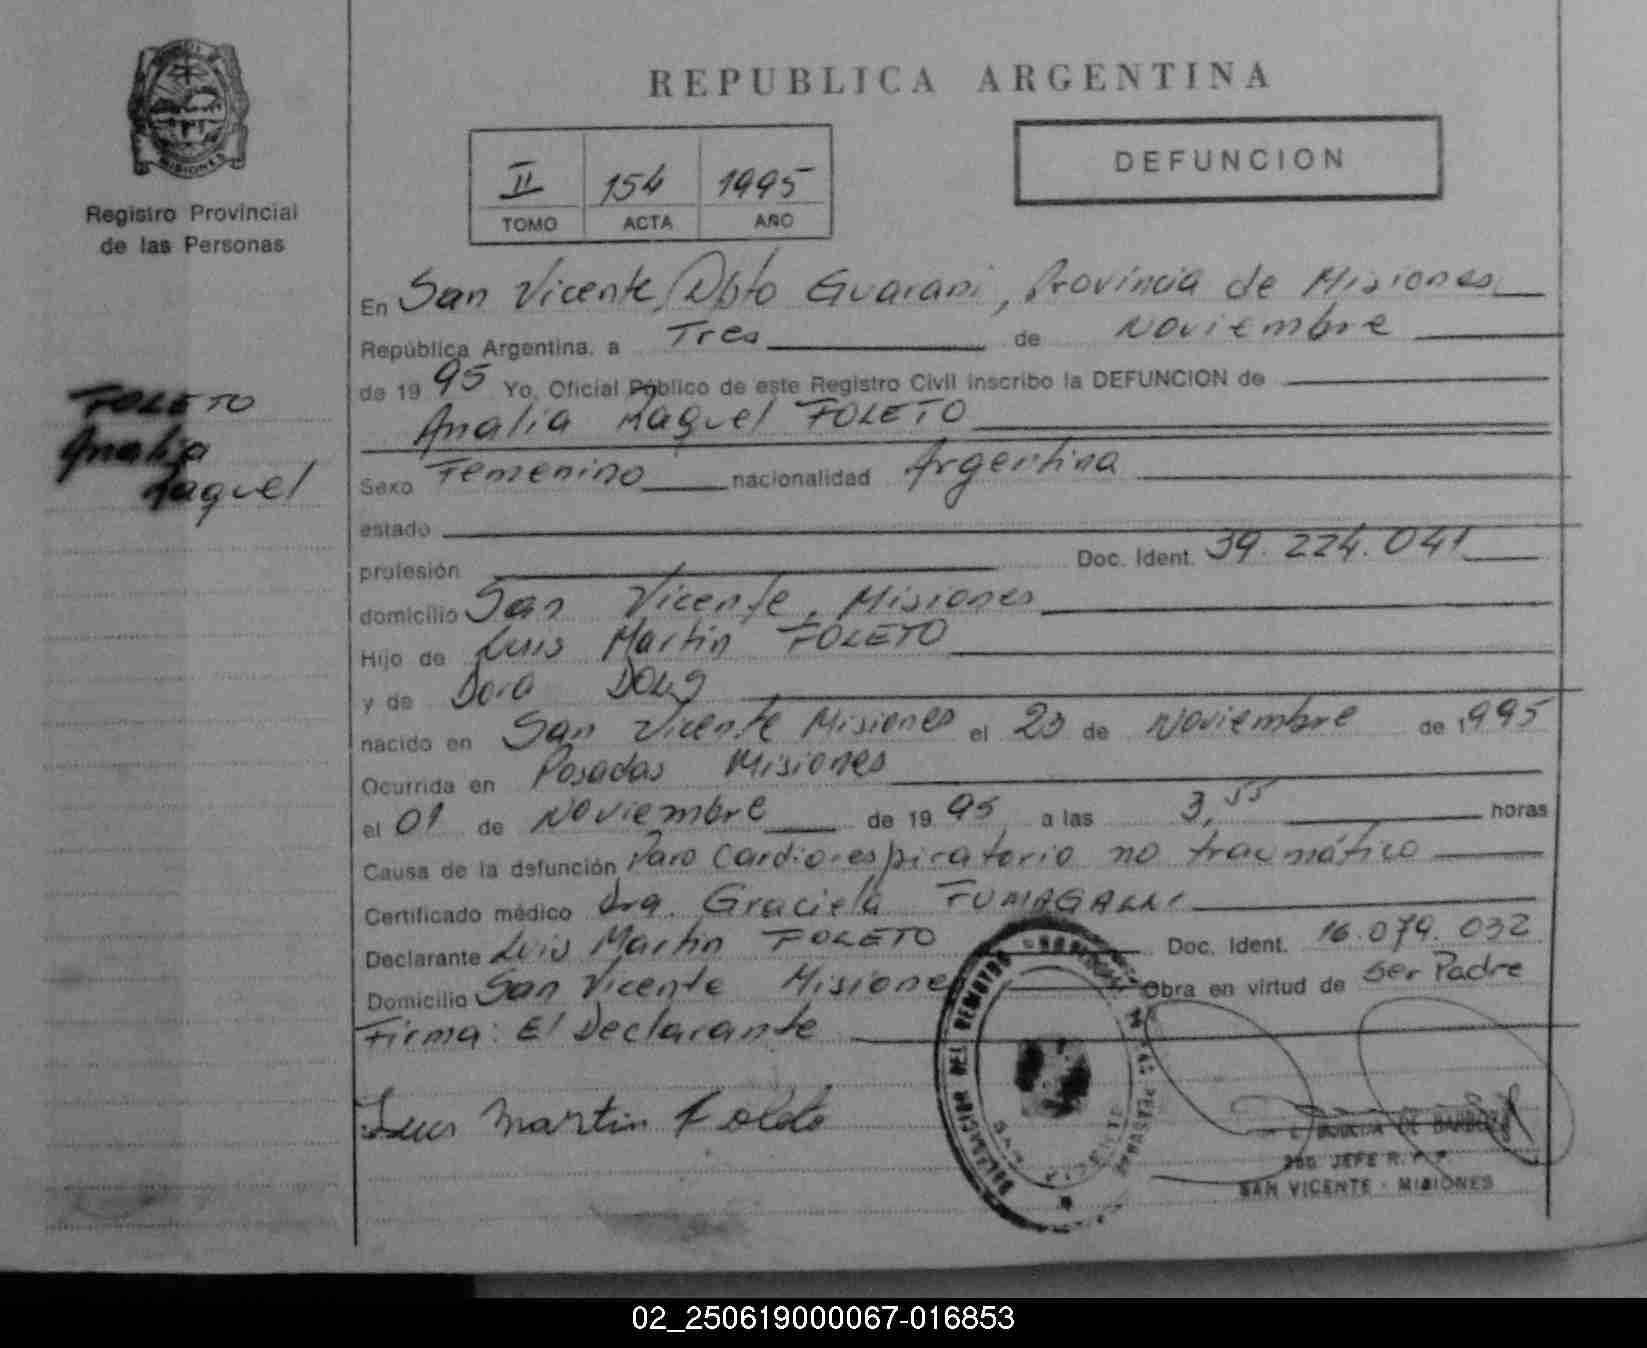 MISIONES
Registro Provincial
de las Personas
FOLETO
Analia
Raquel
REPUBLICA ARGENTINA
II 154 1995
TOMO ACTA AÑO
DEFUNCION
En San Vicente, Dpto Guarani, Provincia de Misiones
República Argentina, a Tres de Noviembre
de 1995 Yo, Oficial Público de este Registro Civil inscribo la DEFUNCION de
Analia Raquel FOLETO
Sexo Femenino nacionalidad Argentina
estado
profesión Doc. Ident. 39.224.041
domicilio San Vicente, Misiones
Hijo de Luis Martin FOLETO
y de Dora
nacido en San Vicente Misiones el 23 de Noviembre de 1995
Ocurrida en Posadas Misiones
el 01 de Noviembre de 1995 a las 3,55 horas
Causa de la defunción Paro Cardiorespiratorio no traumático
Certificado médico Dra. Graciela FUMAGALLI
Declarante Luis Martin FOLETO Doc. Ident. 16.079.032
Domicilio San Vicente Misiones Obra en virtud de Ser Padre
Firma: El Declarante
Luis Martin Foleto
SAN VICENTE
DE BARBOZA
JEFE R.P.P.
SAN VICENTE - MISIONES
02_250619000067-016853